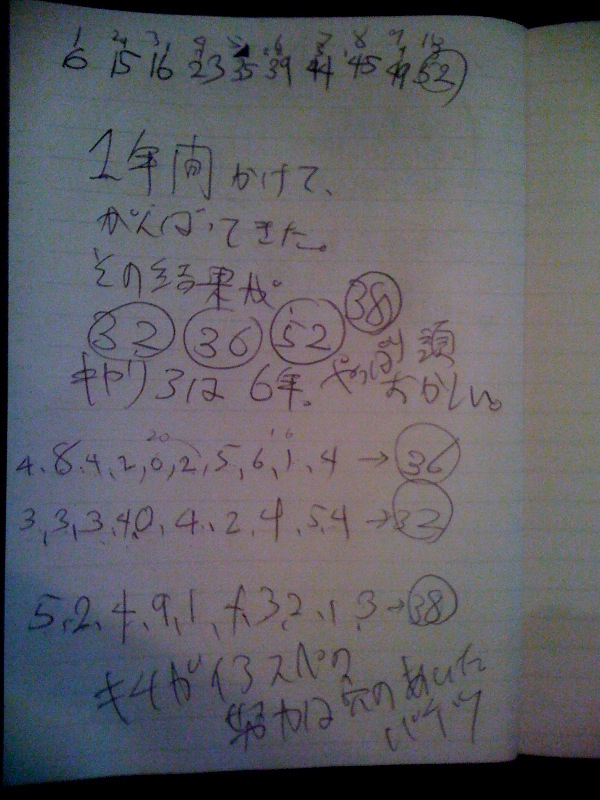 1 2 3 4 5 6 7 8 9 10
6 15 16 23 35 39 44 45 49 52
1年間かけて、
がんばってきた。
その結果が
32 36 52 38
キャリアは6年。やっぱり頭
おかしい。
20 16
4、8、4、2、0、2、5、6、1、4→36
3、3、3、4、0、4、2、4、5、4→32
5、2、4、9、1、4、3、2、1、3→38
努力は穴のあいた
バケツ